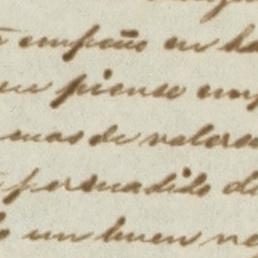 empeño en ha
ue piense em
mas de valers
persuadido d
un buen ne